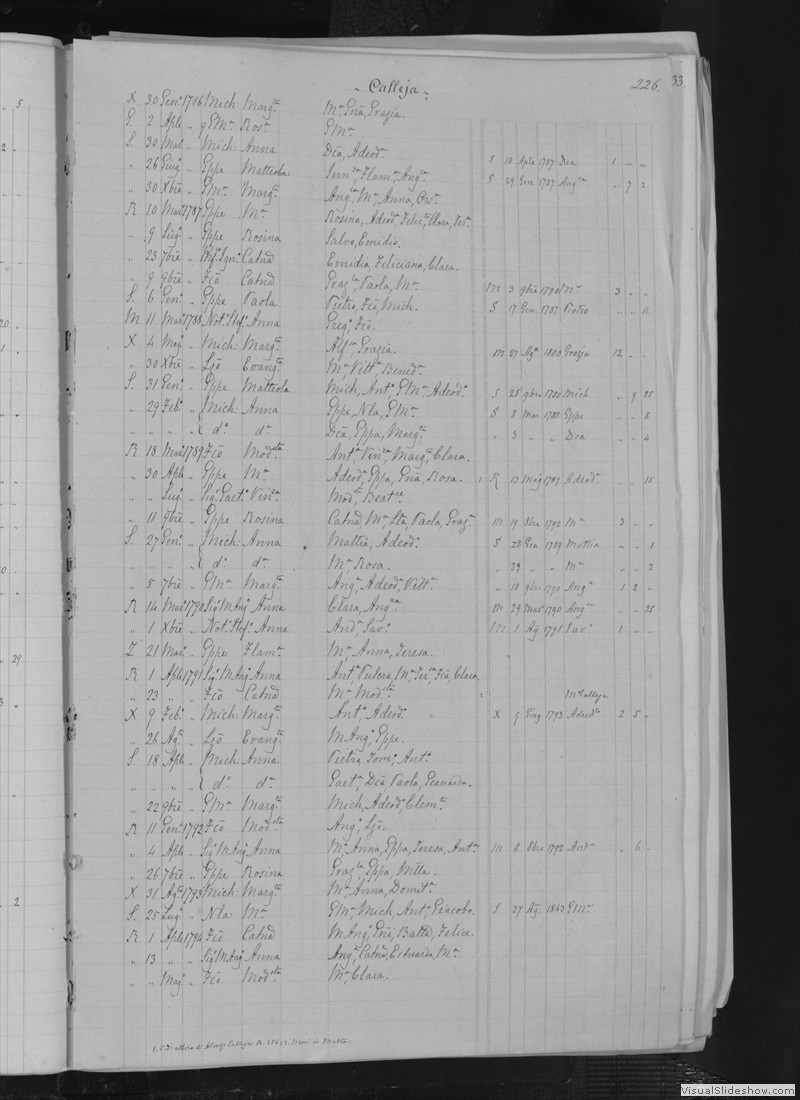 ~ Calleja ~
226. 33.
X 30 Gen: 1786 Mich: Marg:ta M:a, Gña, Grazia.
G. 2 Aple „ G M:a Ros:a G M:a
S. 30 Mar: „ Mich: Anna Dca, Adeod:a
„ 26 Giug: „ Gppe Matteola Flam:a Ang:a S 18 Aple 1787 Dca 1 „ „
„ 30 Xbre „ GM:a Marg:ta Ang:la M:a Anna, S 29 Gen 1787 Ang:la „ 7 2
R 10 Mar: 1787 Gppe M:a Rosina, Adeod: Felic:a Clara, Ter:a
„ 9 Lug: „ Gppe Rosina Salvo, Emidio.
„ 23 7bre „ Ign: Catna Emidia, Feliciana, Clara.
„ 9 9bre „ Fco Catna Graz:la Paola, M:a M 3 9bre 1790 M:a 3 „ „
S. 6 Gen: „ Gppe Paola Pietro, Fco, Mich. S 17 Gen 1787 Pietro „ „ 11
M 11 Mar: 1788 Not: Stef: Anna Greg: Fco.
X 4 Mag: „ Mich: Marg:ta Alf:sa Grazia. M 27 Ag:o 1800 Grazia 12 „ „
„ 30 Xbre „ Lzo Evang:ta M:a Vitt:a Bened:a
S. 31 Gen: „ Gppe Matteola Mich, Ant:o GM:a Adeod:a S 25 9bre 1788 Mich „ 9 25
„ 29 Feb: „ Mich: Anna Gppa, Nla, GM:a S 8 Mar 1788 Gppe „ „ 8
„ „ „ „ d:o d:a Dca, Gppa, Marg:ta „ 3 „ „ Dca „ „ 4
R 18 Mar: 1789 Fco Mod:sta Ant:a Vin:za Marg:ta Clara.
„ 30 Aple „ Gppe M:a Adeod:a Gppa, Gña, Rosa. 1 R 13 1789 Adeod: „ „ 15
„ „ Lug: „ Sig: Gaet: Vin:za Mod:ta Beat:ce
„ 11 9bre „ Gppe Rosina Catna, M:a Paola, Graz:a M 19 8bre 1792 M:a 3 „ „
S. 27 Gen: „ Mich: Anna Mattia, Adeod:a S 28 Gen 1789 Mattia „ „ 1
„ „ „ „ d:o d:a M:a Rosa. „ 29 „ „ M:a „ „ 2
„ 5 7bre „ GM:a Marg:ta Ang:a Adeod:a Vitt:a „ 18 9bre 1790 Ang:a 1 2 „
R 14 Mar: 1790 Sig: M Ang: Anna Clara, Ang:ca M 29 Mar: 1790 Ang:ca „ „ 25
„ 1 Xbre „ Not: Stef: Anna And:a Sav:a M 1 Ag 1791 Sav:a 1 „ „
Z 21 Mar: „ Gppe Flam:a M:a Anna, Teresa.
R 1 Aple 1791 Sig: M Ang: Anna Ant:a Pulcra, M:a Ter:sa Clara.
„ 23 „ „ Fco Catna M:a Mod:sta 2 M:a Calleja
X 9 Feb: „ Mich: Marg:ta Ant:a Adeod:a X 9 Giug 1793 Adeod:a 2 5 „
„ 26 Ag:o „ Lzo Evang:ta M Ang: Gppe.
S. 18 Aple „ Mich: Anna Pietro, Tom: Ant:a
„ „ „ „ d:o d:a Gaet:a Dca, Paola, Gesuarda.
„ 22 9bre „ GM:a Marg:ta Mich, Adeod: Clem:te
R 11 Gen: 1792 Fco Mod:sta Ang: Lzo.
„ 4 Aple „ Sig: M Ang: Anna M:a Anna, Gppa, Teresa, Ant:a M 8 8bre 1792 Ant:a „ 6 „
„ 26 7bre „ Gppe Rosina Graz:la Gppa,
X 31 Ag:o 1793 Mich: Marg:ta M:a Anna, Domit:a
S. 25 Lug: „ Nla M:a GM:a Mich, Ant:o Giacobo. S 27 Ag: 1843 GM:a
R 1 Aple 1794 Fco Catna M Ang: Batta, Felice.
„ 13 „ „ Sig: M Ang: Anna Ang:a Catna, M:a
„ „ Mag: „ Fco Mod:sta M:a Clara.
1. V:di albero di Calleja
VisualSlideshow.com